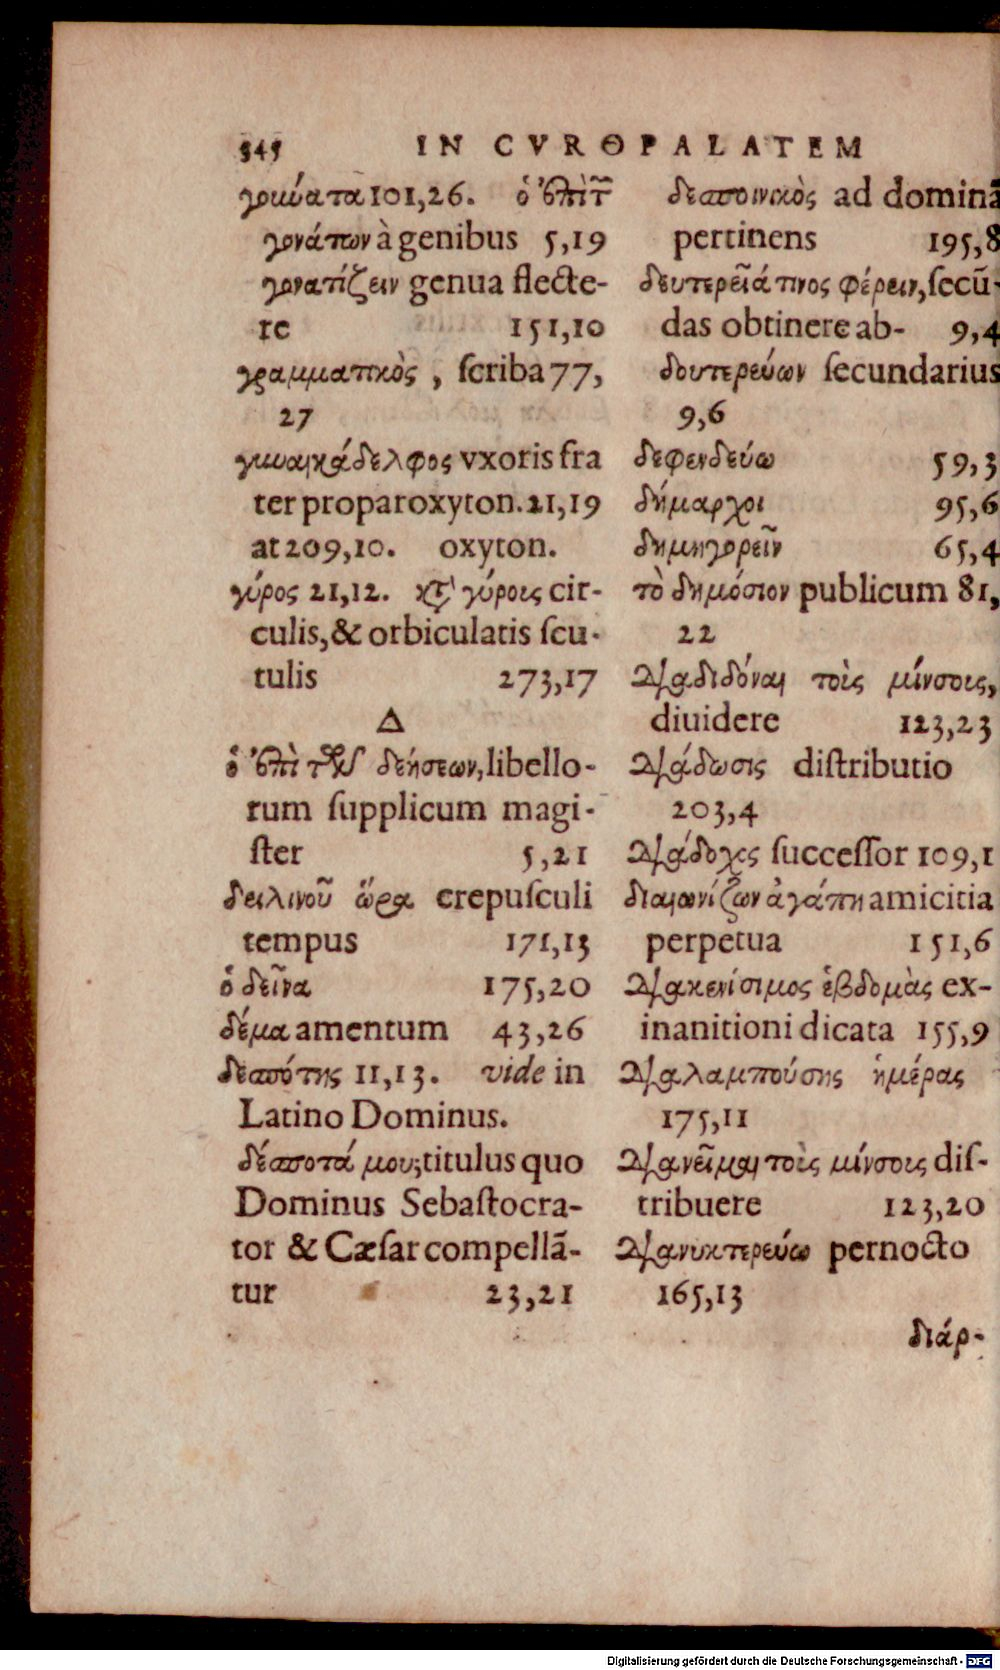 545 IN CVROPALATEM
γονύατα 101,26. ὁ ἐπὶ τ͂
γονάτων à genibus 5,19
γονατίζειν genua flecte-
re 151,10
γραμματικὸς, scriba 77,
27
γυναικάδελφος vxoris fra
ter proparoxyton. 21,19
at 209,10. oxyton.
γύρος 21,12. κατὰ γύροις cir-
culis, & orbiculatis scu-
tulis 273,17
Δ
ὁ ἐπὶ τῶν δεήσεων, libello-
rum supplicum magi-
ster 5,21
δειλινοῦ ὥρα crepusculi
tempus 171,13
ὁ δεῖνα 175,20
δέμα amentum 43,26
δεσπότης 11,13. vide in
Latino Dominus.
δέσποτά μου; titulus quo
Dominus Sebastocra-
tor & Cæsar compellã-
tur 23,21
δεσποινικὸς ad dominã
pertinens 195,8
δευτερεῖά τινος φέρειν, secũ-
das obtinere ab- 9,4
δευτερεύων secundarius
9,6
δεφενδεύω 59,3
δήμαρχοι 95,6
δημηγορεῖν 65,4
τὸ δημόσιον publicum 81,
22
διαδιδόναι τοῖς μίνσοις,
diuidere 123,23
διάδωσις distributio
203,4
διάδοχος successor 109,1
διαιωνίζων ἀγάπη amicitia
perpetua 151,6
διακενίσιμος ἑβδομὰς ex-
inanitioni dicata 155,9
διαλαμπούσης ἡμέρας
175,11
διανεῖμαι τοῖς μίνσοις dis-
tribuere 123,20
διανυκτερεύω pernocto
165,13
διάρ-
Digitalisierung gefördert durch die Deutsche Forschungsgemeinschaft - DFG